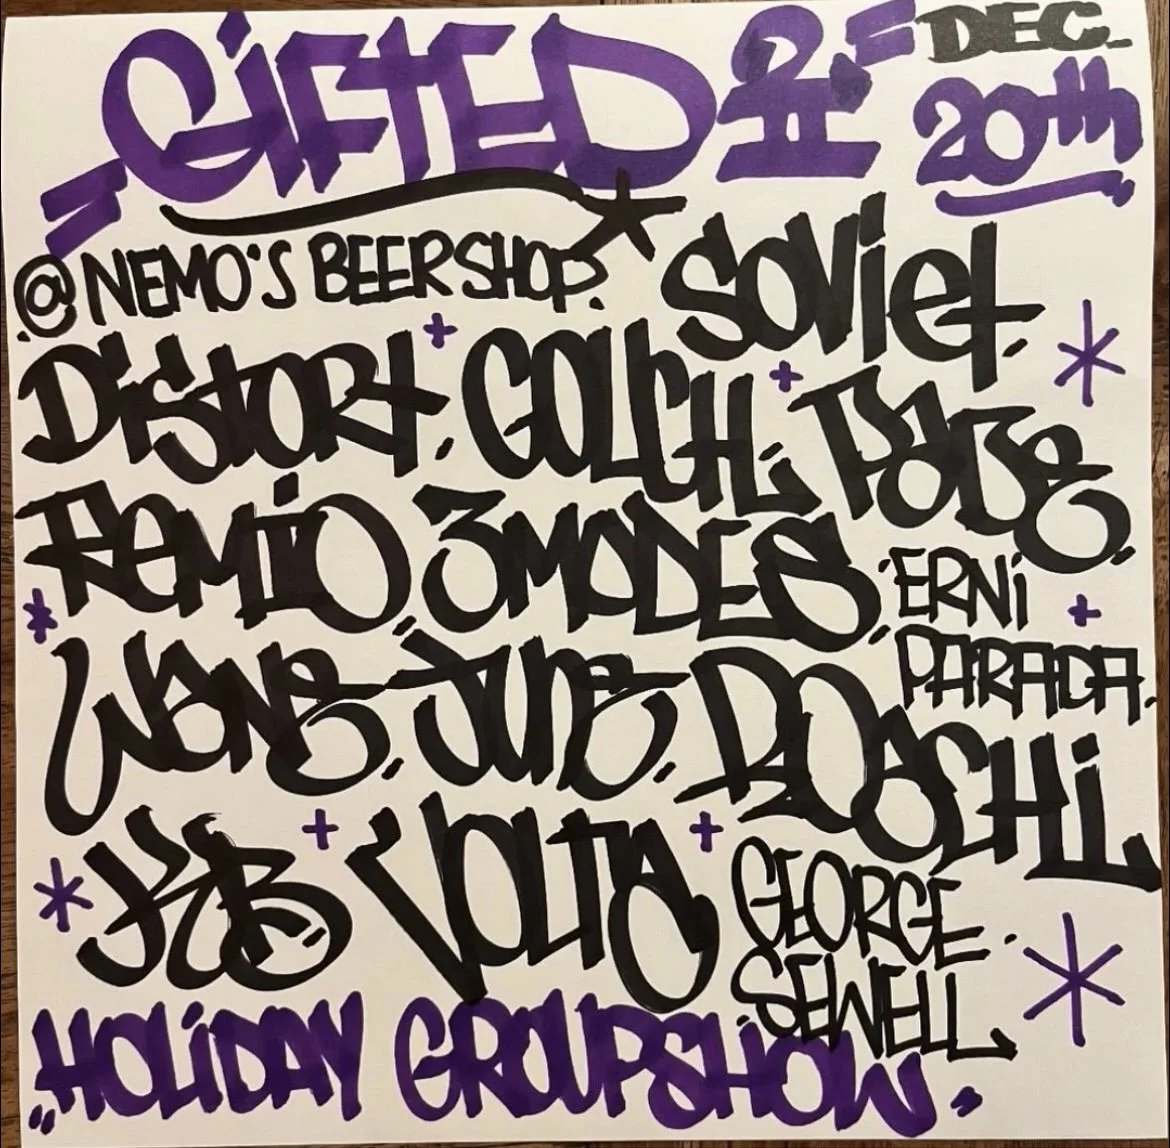 "GIFTED II" DEC. 20th
@ NEMO'S BEERSHOP. SOVIET.
DISTORT, GOUCH, PABE,
REMIO, 3MODES, ERNI PARADA.
WANE, JUNE, ROACHI
KB VOLTA GEORGE. SEWELL.
"HOLIDAY GROUPSHOW"